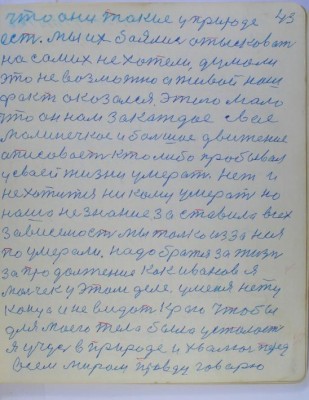 что они такие у природе 43
ест. Мы их баямся атысковат
на самих не хотели, думали
это не возможно а живой наш
факт оказался, этого мало
что он нам за каждае свае
малинечкое и большие движение
описовает кто либо пробывал
у своей жизни умерать нет и
не хотится никому умерат но
нашо не знание заставила всех
зависемост мы толко изза нея
по умерали. надо братся за жизн
за продолжения как иванов я
малчек у этом деле. уменя нету
конца и не видат краю чтобы
для маего тела была усталост
я учус в природе и хвалюс перед
всем миром правду говарю